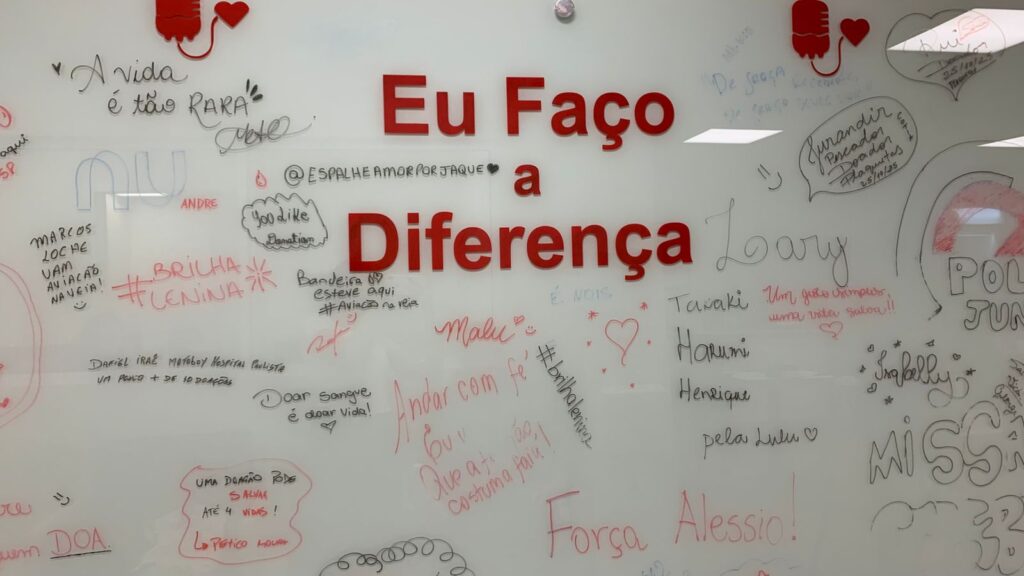 Eu Faço
a
Diferença
A vida
é tão RARA
aqui
@ESPALHEAMORPORJAQUE
NU
ANDRE
You Like
Donation
MARCOS
LOCHE
VAM
AVIAÇÃO
NA VEIA!
#BRILHA
LENINA
Bandeira
esteve aqui
#Aviacão na veia
É NOIS
Malu
DANIEL IRAÊ MOTOBOY HOSPITAL PAULISTA
UM POUCO + DE 10 DOAÇÕES
Doar sangue
é doar vida!
Andar com fé
Eu
Que a
costuma faiá!
#brilhalenina
Jurandir
Pescador
Doador
Plaquetas
25/10/25
Lary
Tawaki
Harumi
Henrique
pela Lulu
uma vida salva!!
POL
JUN
Isabelly
MISS
UMA DOAÇÃO PODE
SALVAR
ATÉ 4 VIDAS!
DOA
Força Alessio!